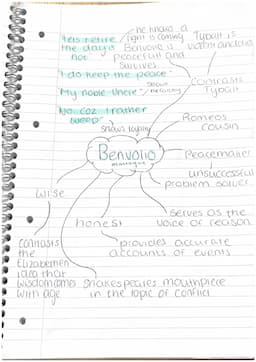 he knows a
lets retire fight is coming Tybalt is
the day is Benvolio is violent and evil
hot peacefull and
survives
contrasts
Tybalt
"I do keep the peace"
"My noble uncle" shows
No, coz I rather
weep" shows loyalty
Romeos
cousin
Benvolio
montague
Peacemaker
unsuccessful
problem solver
wise
honest
serves as the
voice of reason
provides accurate
accounts of events
contrasts
the
Elizabethen
idea that
wisdom comes
with age
shakespeares mouthpiece
in the topic of conflict